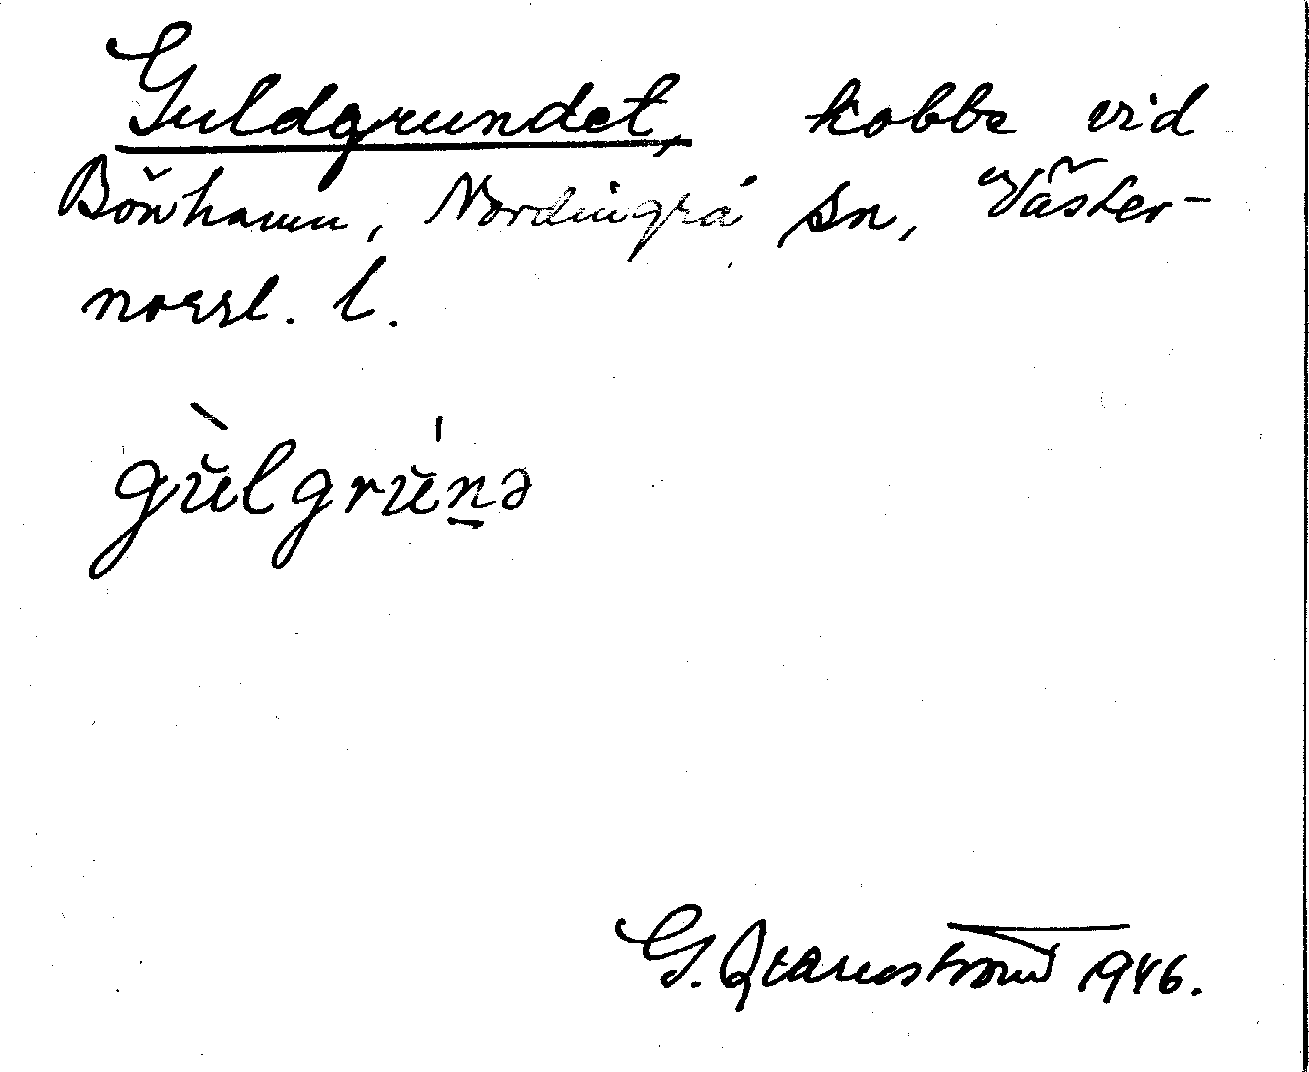 Guldgrundet, kobbe vid
Bönhamn, Nordingrå sn, Väster-
norrl. l.
gùlgrún̲ə
G. 1946.